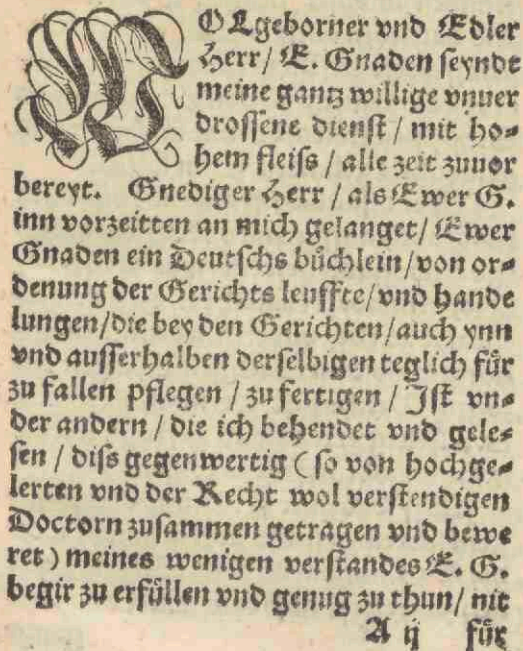 WOLgeborner vnd Edler
Herr / E. Gnaden seyndt
meine gantz willige vnuer
drossene dienst / mit ho⸗
hem fleiss / alle zeit zuuor
bereyt. Gnediger Herr / als Ewer G.
inn vorzeitten an mich gelanget / Ewer
Gnaden ein Deutschs bůchlein / von or⸗
denung der Gerichts leuffte / vnd hande
lungen / die bey den Gerichten / auch ynn
vnd ausserhalben derselbigen teglich fůr
zu fallen pflegen / zu fertigen / Ist vn⸗
der andern / die ich behendet vnd gele⸗
sen / diss gegenwertig ( so von hochge⸗
lerten vnd der Recht wol verstendigen
Doctorn zusammen getragen vnd bewe
ret ) meines wenigen verstandes E. G.
begir zu erfüllen vnd genug zu thun / nit
A ij fůr